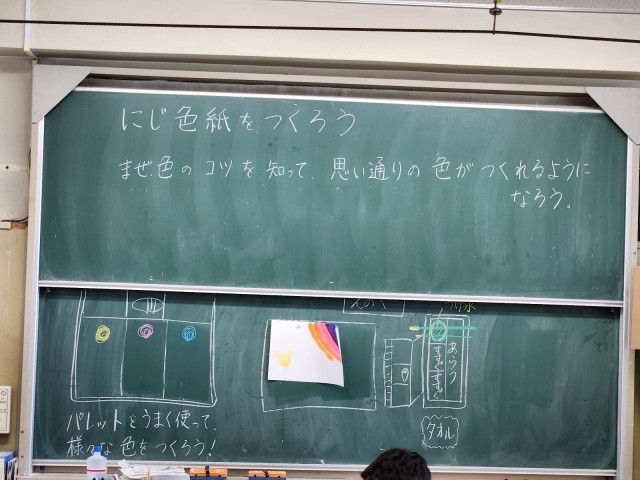 にじ色紙をつくろう
まぜ色のコツを知って、思い通りの色がつくれるように
なろう。
あらう
すすぐ すすぐ
パレットをうまく使って、
様々な色をつくろう!
タオル